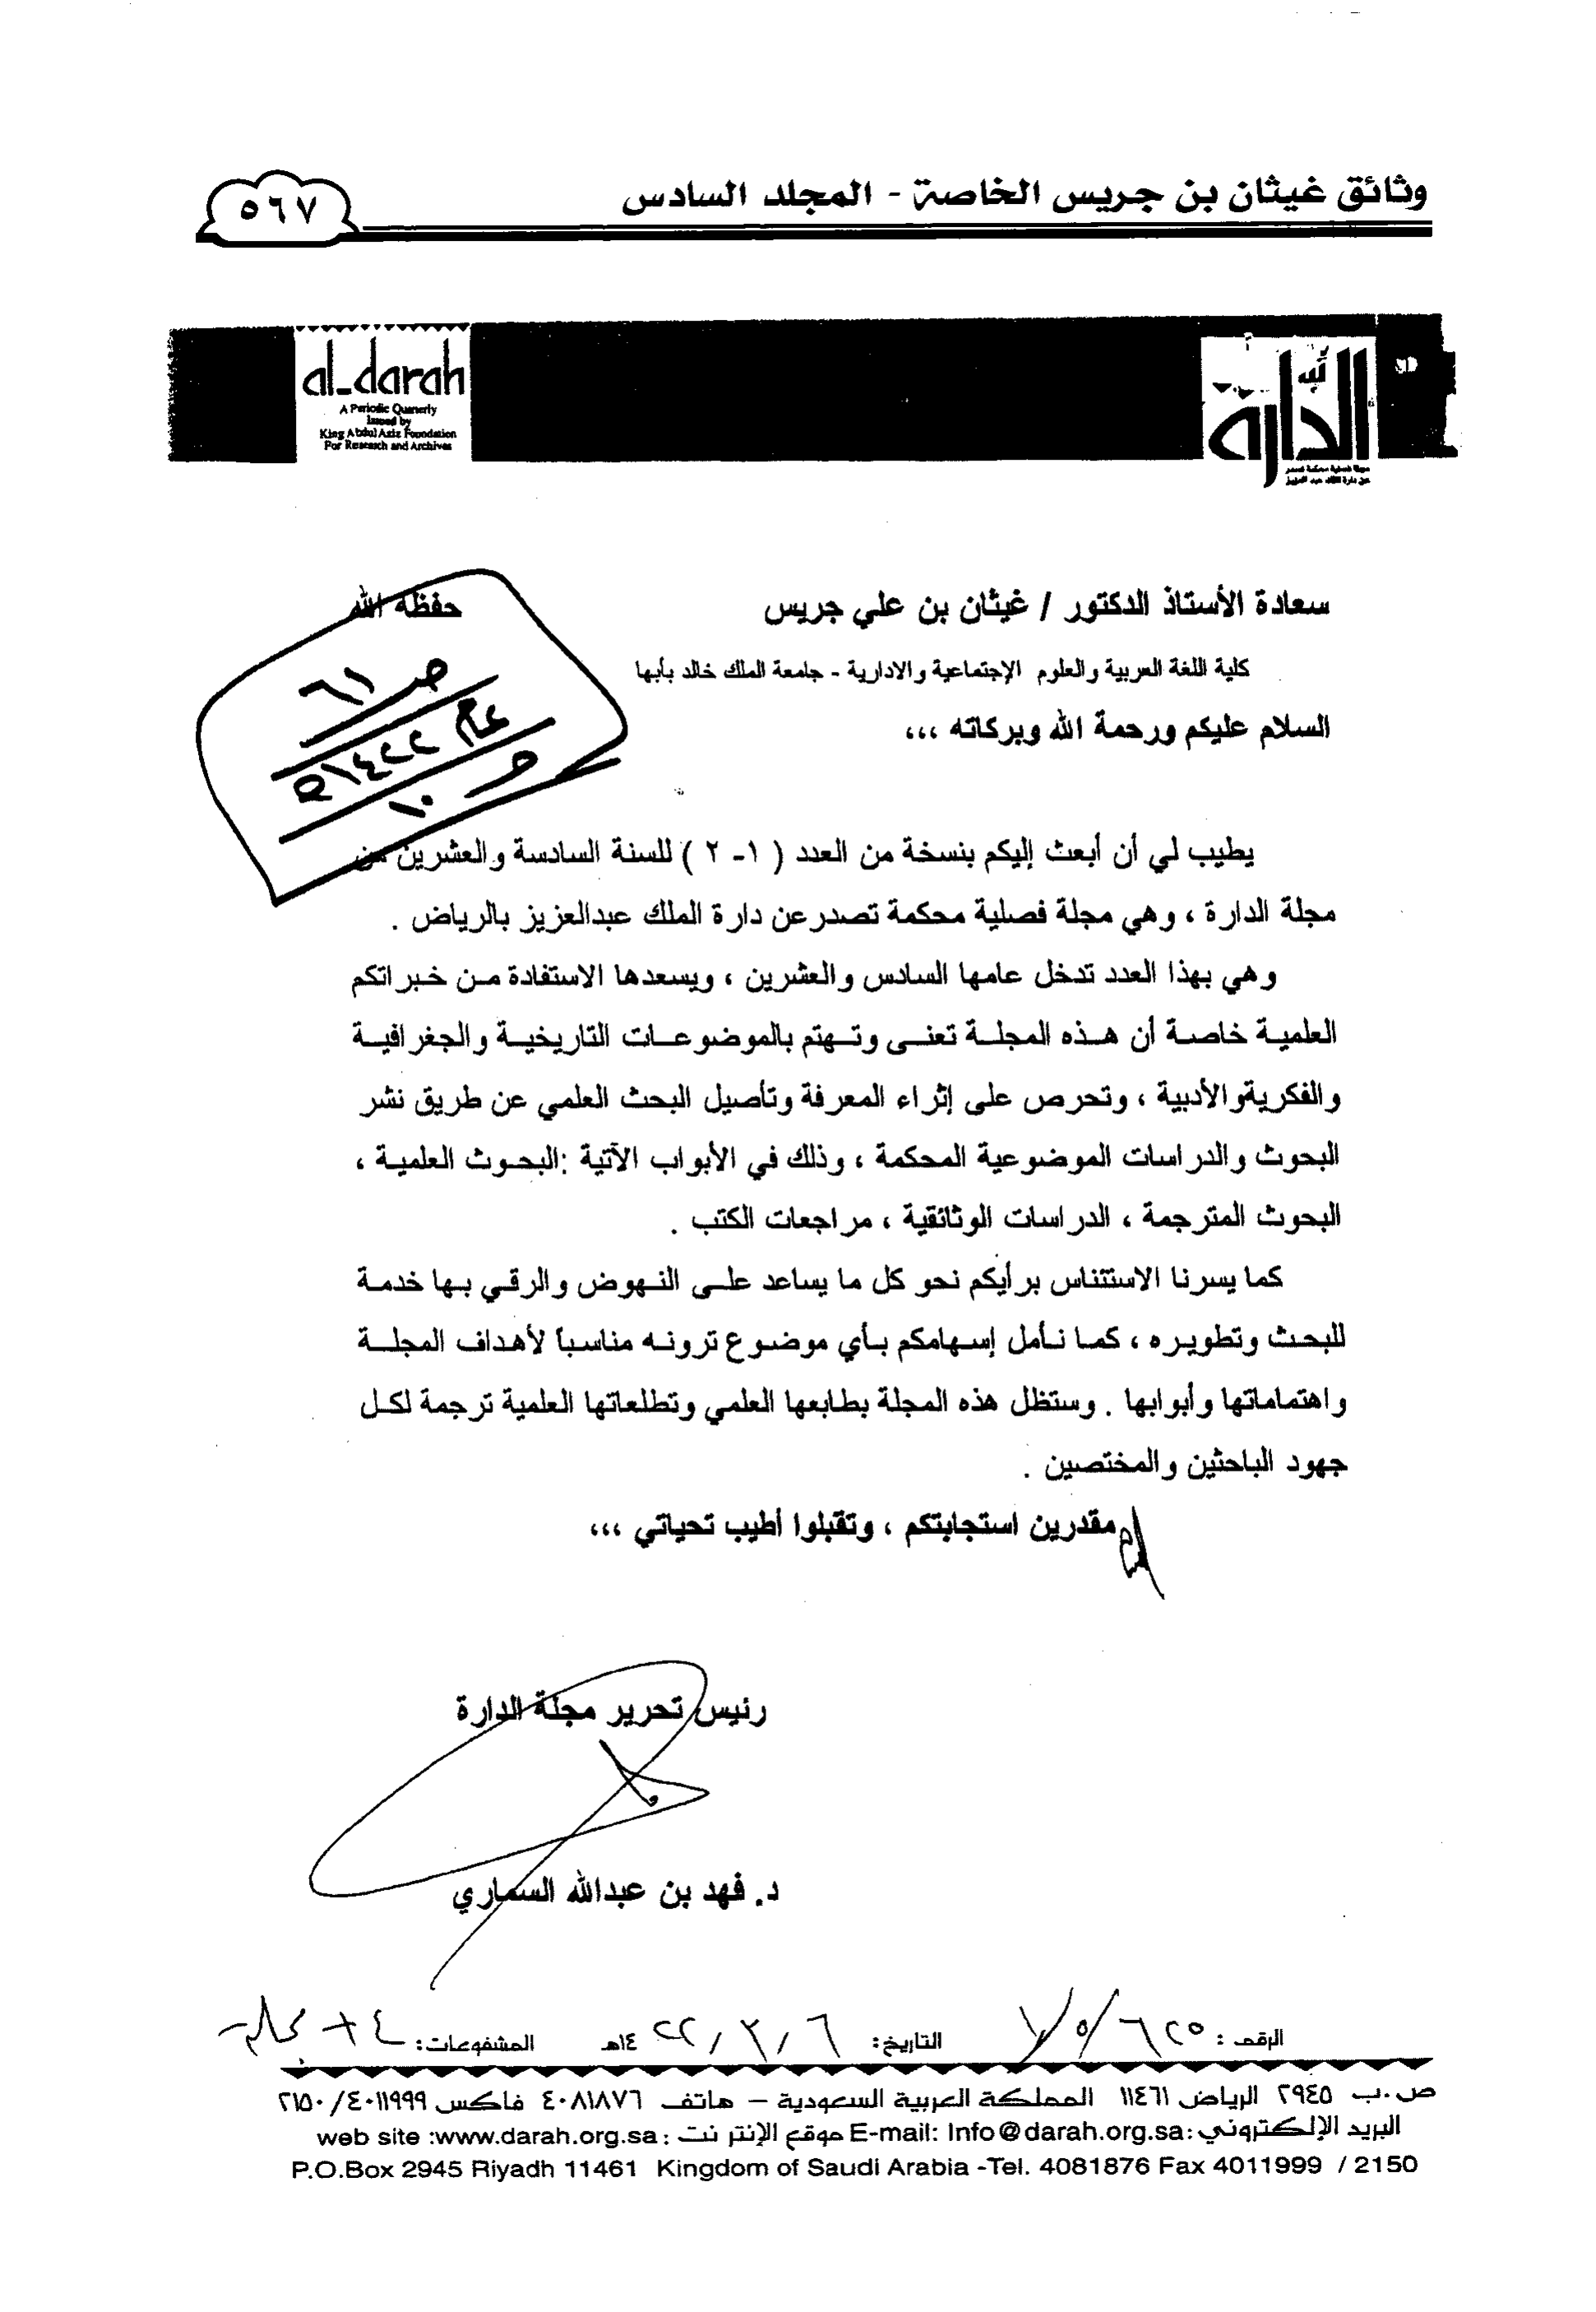 وثائق غيثان بن جريس الخاصة - المجلد السادس
٥٦٧
al-darah
A Periodic Quarterly
Issued by
King Abdul Aziz Foundation
For Research and Archives
الدارة
مجلة فصلية محكمة تصدر
عن دارة الملك عبد العزيز
سعادة الأستاذ الدكتور / غيثان بن علي جريس حفظه الله
كلية اللغة العربية والعلوم الإجتماعية والادارية - جامعة الملك خالد بأبها
السلام عليكم ورحمة الله وبركاته ،،،
ص ٦١
عام ١٤٢٢هـ
و ١٠
يطيب لي أن أبعث إليكم بنسخة من العدد ( ١- ٢ ) للسنة السادسة والعشرين من
مجلة الدارة ، وهي مجلة فصلية محكمة تصدر عن دارة الملك عبدالعزيز بالرياض .
وهي بهذا العدد تدخل عامها السادس والعشرين ، ويسعدها الاستفادة من خبراتكم
العلمية خاصة أن هذه المجلة تعنى وتهتم بالموضوعات التاريخية والجغرافية
والفكريةوالأدبية ، وتحرص على إثراء المعرفة وتأصيل البحث العلمي عن طريق نشر
البحوث والدراسات الموضوعية المحكمة ، وذلك في الأبواب الآتية :البحوث العلمية ،
البحوث المترجمة ، الدراسات الوثائقية ، مراجعات الكتب .
كما يسرنا الاستئناس برأيكم نحو كل ما يساعد على النهوض والرقي بها خدمة
للبحث وتطويره ، كما نأمل إسهامكم بأي موضوع ترونه مناسباً لأهداف المجلة
واهتماماتها وأبوابها . وستظل هذه المجلة بطابعها العلمي وتطلعاتها العلمية ترجمة لكل
جهود الباحثين والمختصين .
مقدرين استجابتكم ، وتقبلوا أطيب تحياتي ،،،
رئيس تحرير مجلة الدارة
د. فهد بن عبدالله السماري
الرقم : التاريخ: ٦ / ٢ / ١٤٢٢هـ المشفوعات: ٤ + مجلة
ص.ب ٢٩٤٥ الرياض ١١٤٦١ المملكة العربية السعودية – هاتف ٤٠٨١٨٧٦ فاكس ٤٠١١٩٩٩/ ٢١٥٠
البريد الإلكتروني:E-mail: Info@darah.org.sa موقع الإنتر نت :web site :www.darah.org.sa
P.O.Box 2945 Riyadh 11461 Kingdom of Saudi Arabia -Tel. 4081876 Fax 4011999 / 2150